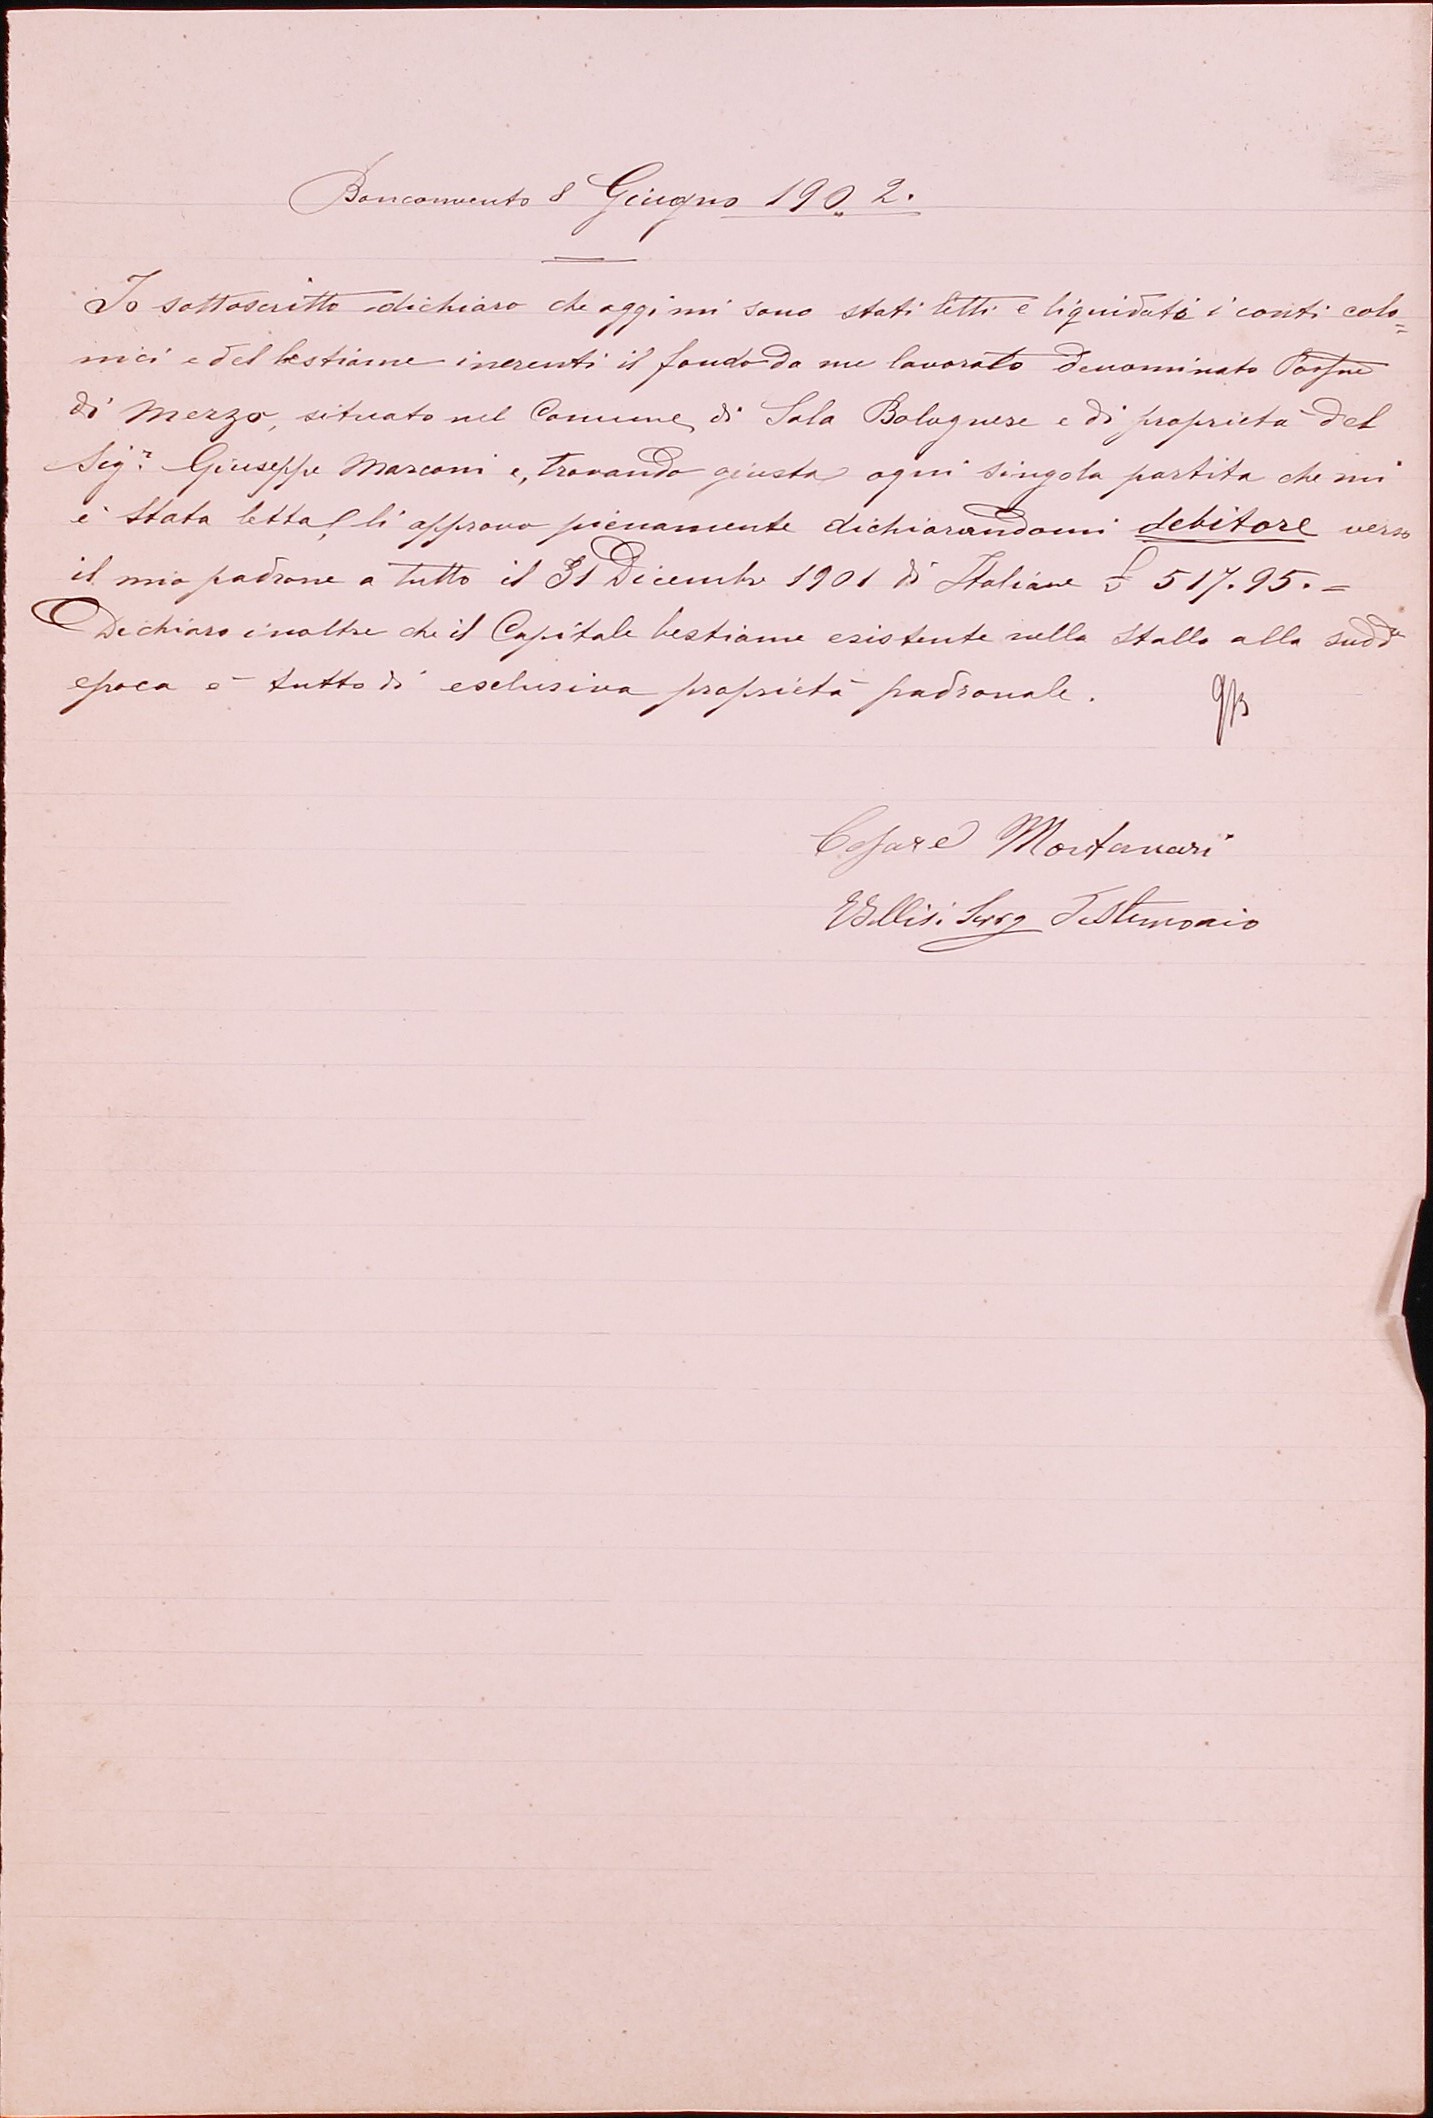 Bonconvento 8 Giugno 1902.
Io sottoscritto dichiaro che oggi mi sono stati letti e liquidati i conti colo=
nici e del bestiame inerenti il fondo da me lavorato denominato
di Mezzo, situato nel Comune di Sala Bolognese e di proprietà del
Sig.r Giuseppe Marconi e, trovando giusta ogni singola partita che mi
è stata letta, li approvo pienamente dichiarandomi debitore verso
il mio padrone a tutto il 31 Dicembre 1901 di Italiane £ 517.95.=
Dichiaro inoltre che il Capitale bestiame esistente nella stalla alla sudd.
epoca è tutto di esclusiva proprietà padronale.
Cesare Montanari
Testimonio